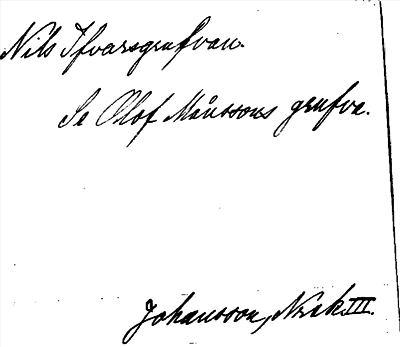 Nils Ifvarsgrufvan.
Se Olof Månssons grufva.
Johansson, Norak III.